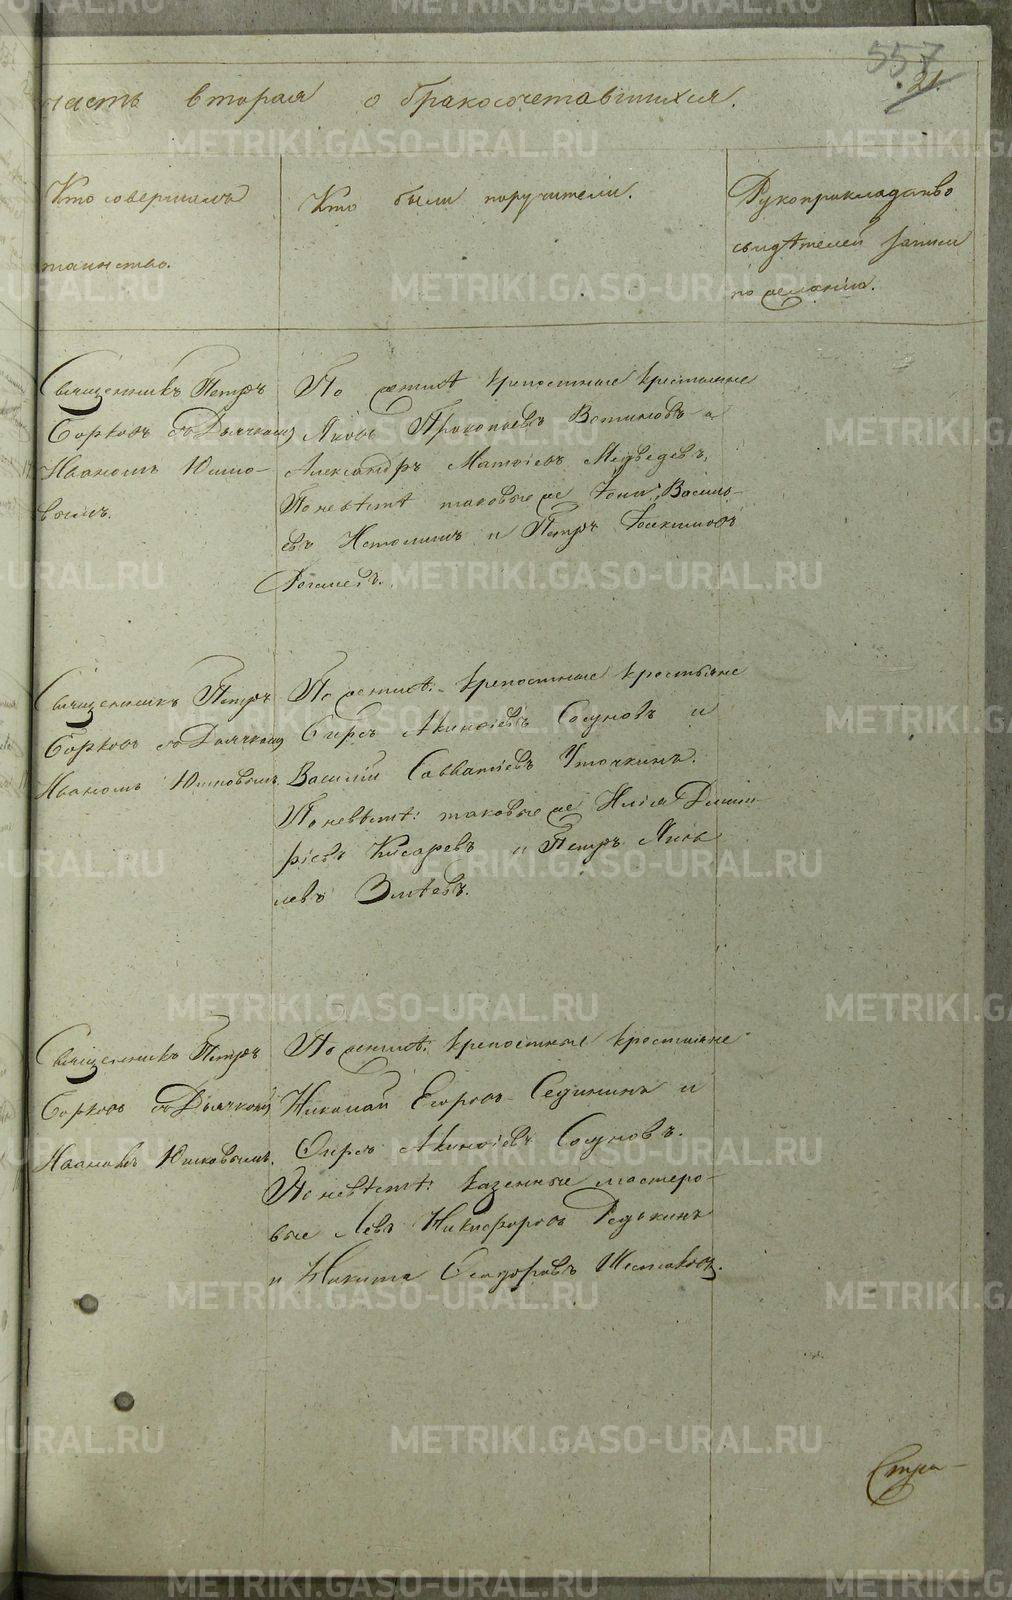 557
21.
часть вторая о бракосочетавшихся.
Кто совершалъ
таинство.
Кто были поручители.
Рукоприкладство
свидѣтелей записи
по желанію.
Священникъ Петръ
Борковъ съ Дьячкомъ
Иваномъ Юшко-
вымъ.
По женихѣ крепостные крестьяне
Яковъ Прокопьевъ Вотиновъ и
Александръ Матвіевъ Медведевъ,
По невѣстѣ таковые же Іона Василь-
евъ Истоминъ и Петръ Іоакимовъ
Священникъ Петръ
Борковъ съ Дьячкомъ
Иваномъ Юшковымъ.
По женихѣ: крепостные крестьяне
Сосуновъ и
Василій Савватіевъ Уточкинъ.
По невѣстѣ: таковые же Илія Димит-
ріевъ Кисаревъ и Петръ Яков-
левъ Змѣевъ.
Священникъ Петръ
Борковъ съ Дьячкомъ
Иваномъ Юшковымъ.
По женихѣ: крепостные крестьяне
Николай Егоровъ Сединкинъ и
Сосуновъ.
По невѣстѣ: казенные мастеро-
вые Левъ Никифоровъ Редькинъ
и Никита Сидоровъ Шестаковъ.
Стра-
METRIKI.GASO-URAL.RU